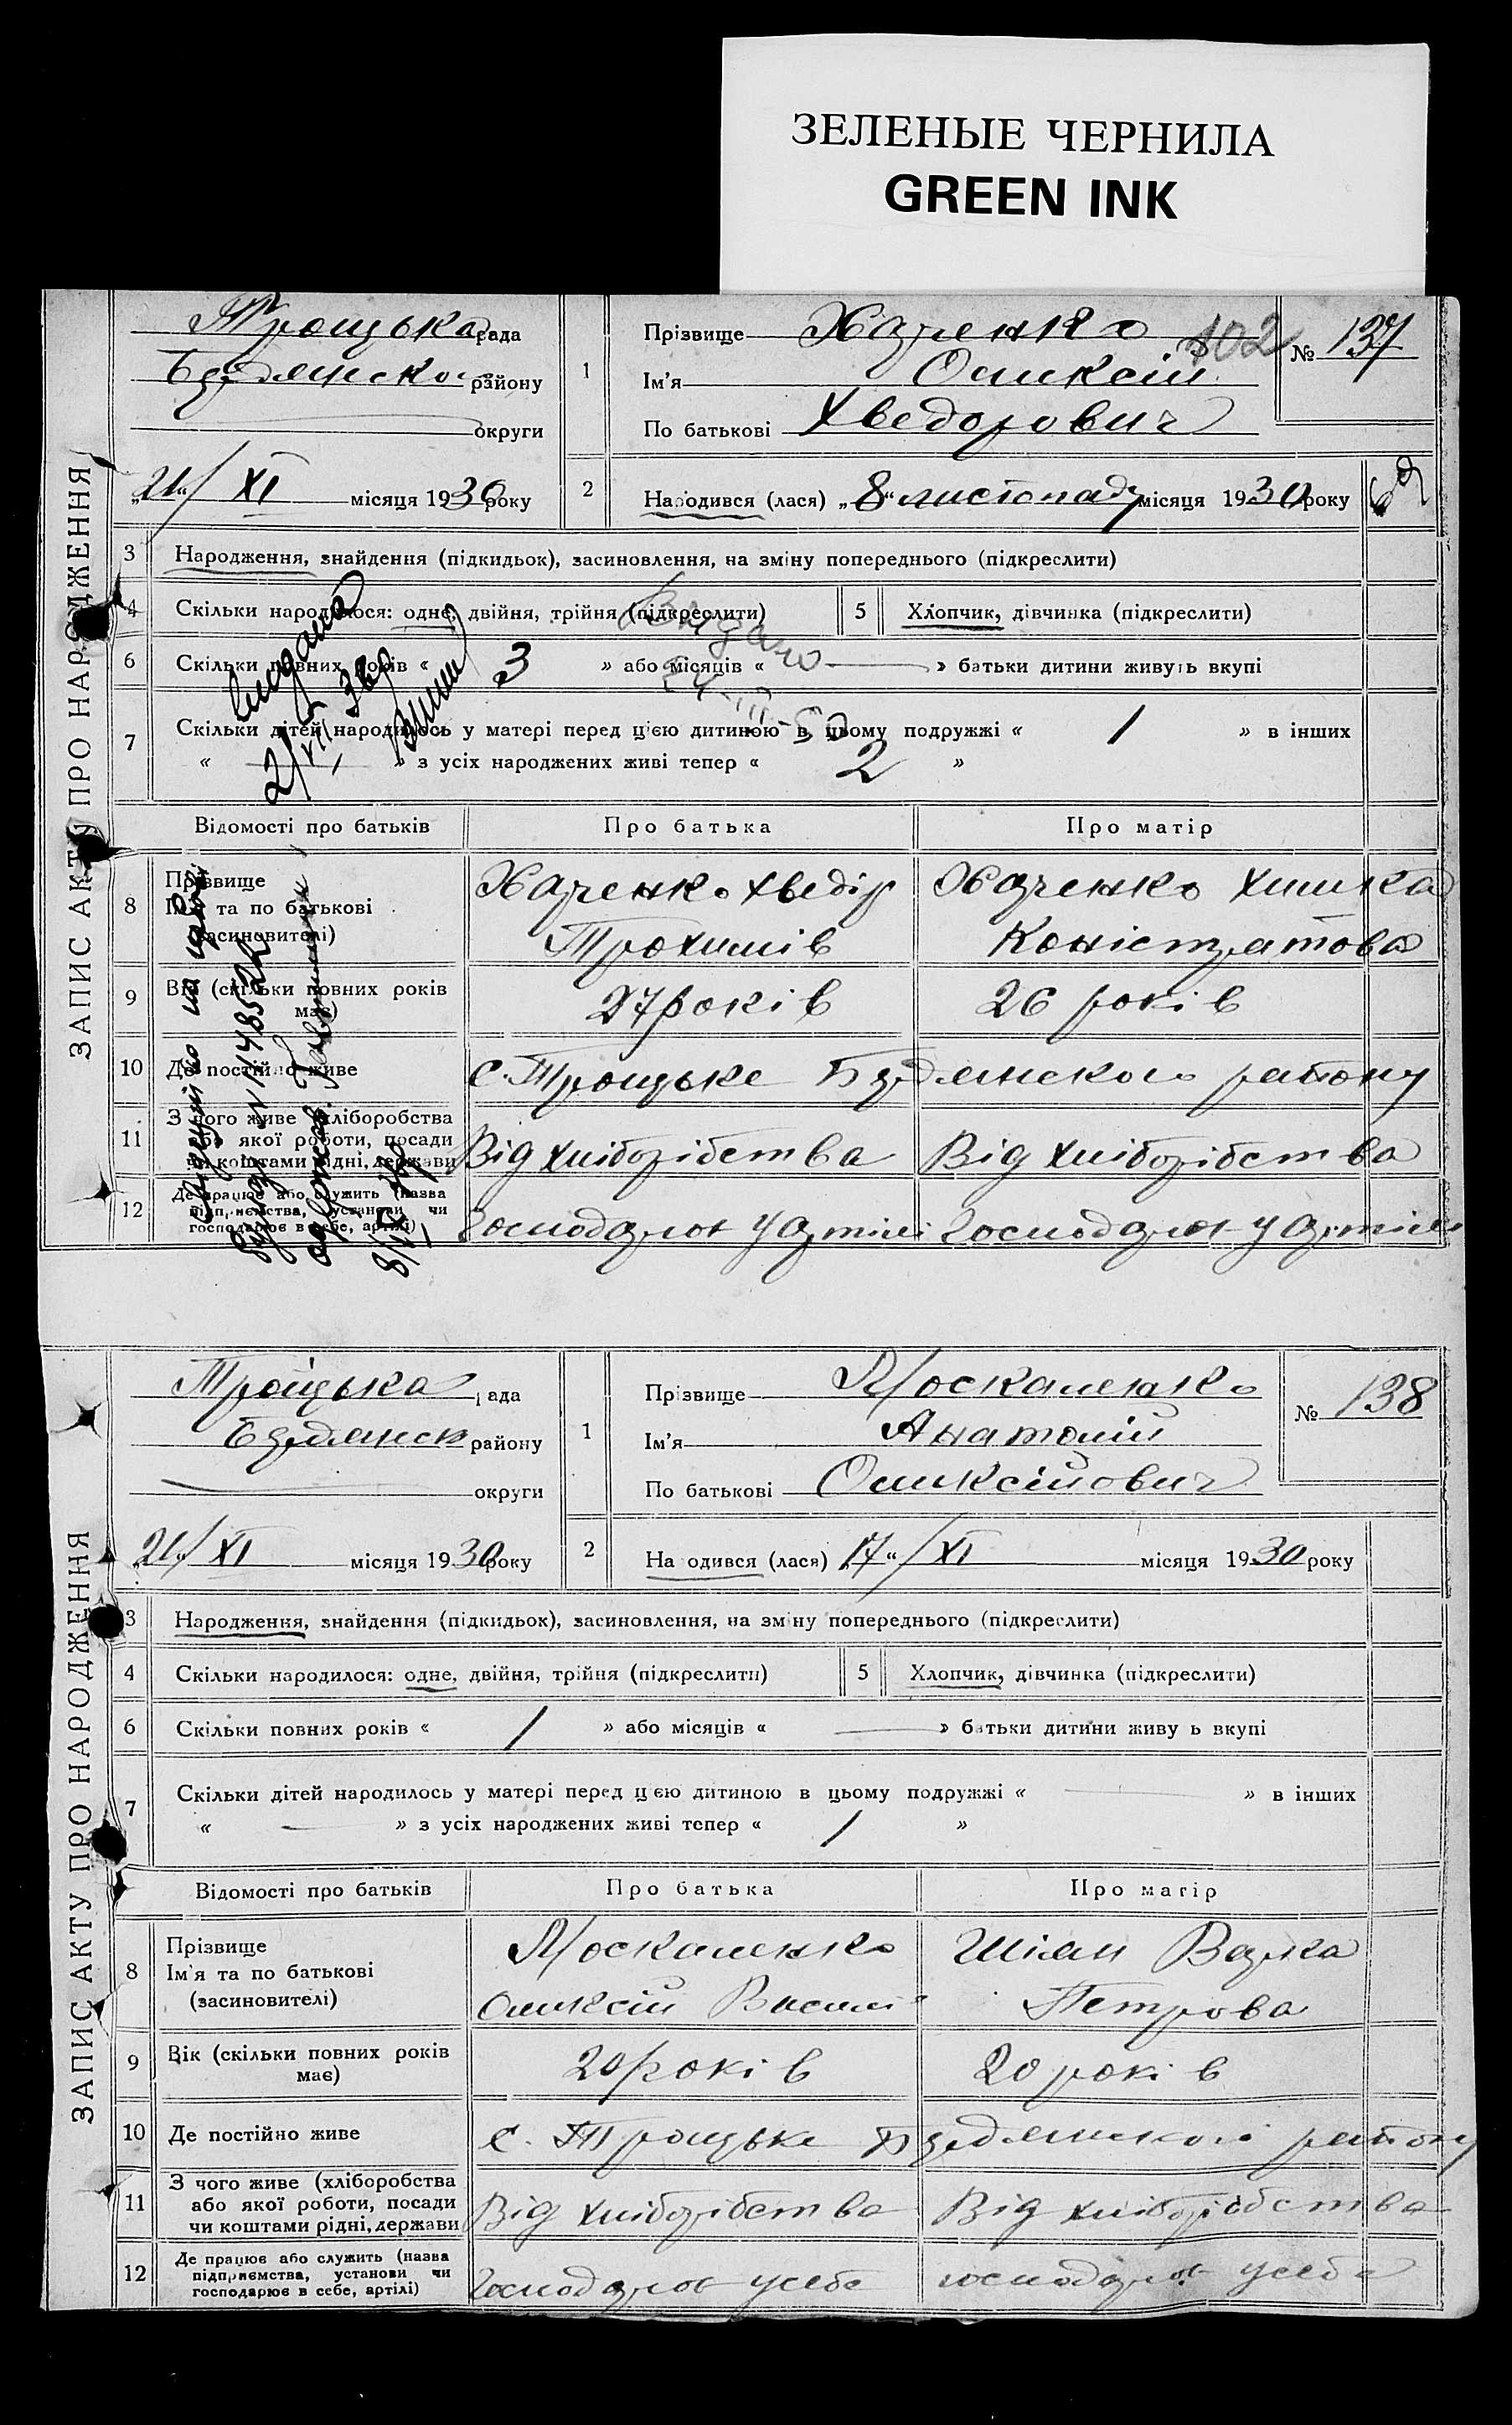 ЗЕЛЕНЫЕ ЧЕРНИЛА
GREEN INK
ЗАПИС АКТУ ПРО НАРОДЖЕННЯ
Троцька рада
Бердянсько району
округи
„21“/XI місяця 1930 року
1
Прізвище Харченко
Ім'я Оликсій
По батькові Хведорович
102
№ 137
2
Народився (лася) „8“ листопаду місяця 1930 року
3 Народження, знайдення (підкидьок), засиновлення, на зміну попереднього (підкреслити)
4 Скільки народилося: одне, двійня, трійня (підкреслити)
5 Хлопчик, дівчинка (підкреслити)
6 Скільки повних років « 3 » або місяців « — » батьки дитини живуть вкупі
7 Скільки дітей народилось у матері перед цією дитиною в цьому подружжі « 1 » в інших
« — » з усіх народжених живі тепер « 2 »
Видано
Відомості про батьків
Про батька
Про матір
8 Прізвище
Ім'я та по батькові
(засиновителі)
Харченко Хведір
Трохимів
Харченко Химка
Коністратова
9 Вік (скільки повних років
має)
27 років
26 років
10 Де постійно живе
с. Троцьке Бердянского району
11 З чого живе (хліборобства
або якої роботи, посади
чи коштами рідні, держави
Від хліборібства
Від хліборібства
12 Де працює або служить (назва
підприємства, установи чи
господарює в себе, артілі)
Господарює у артілі
Господарює у артілі
ЗАПИС АКТУ ПРО НАРОДЖЕННЯ
Троїцька рада
Бердянск району
округи
21/XI місяця 1930 року
1
Прізвище Москаленко
Ім'я Анатолій
По батькові Оликсійович
№ 138
2
Народився (лася) 17“/XI місяця 1930 року
3 Народження, знайдення (підкидьок), засиновлення, на зміну попереднього (підкреслити)
4 Скільки народилося: одне, двійня, трійня (підкреслити)
5 Хлопчик, дівчинка (підкреслити)
6 Скільки повних років « 1 » або місяців « — » батьки дитини живуть вкупі
7 Скільки дітей народилось у матері перед цією дитиною в цьому подружжі « — » в інших
« — » з усіх народжених живі тепер « 1 »
Відомості про батьків
Про батька
Про матір
8 Прізвище
Ім'я та по батькові
(засиновителі)
Москаленко
Оликсій Василі
Шіян Варка
Петрова
9 Вік (скільки повних років
має)
20 років
20 років
10 Де постійно живе
с. Троцьке Бердянского району
11 З чого живе (хліборобства
або якої роботи, посади
чи коштами рідні, держави
Від хліборібства
Від хліборібства
12 Де працює або служить (назва
підприємства, установи чи
господарює в себе, артілі)
Господарює у себе
господарює у себе